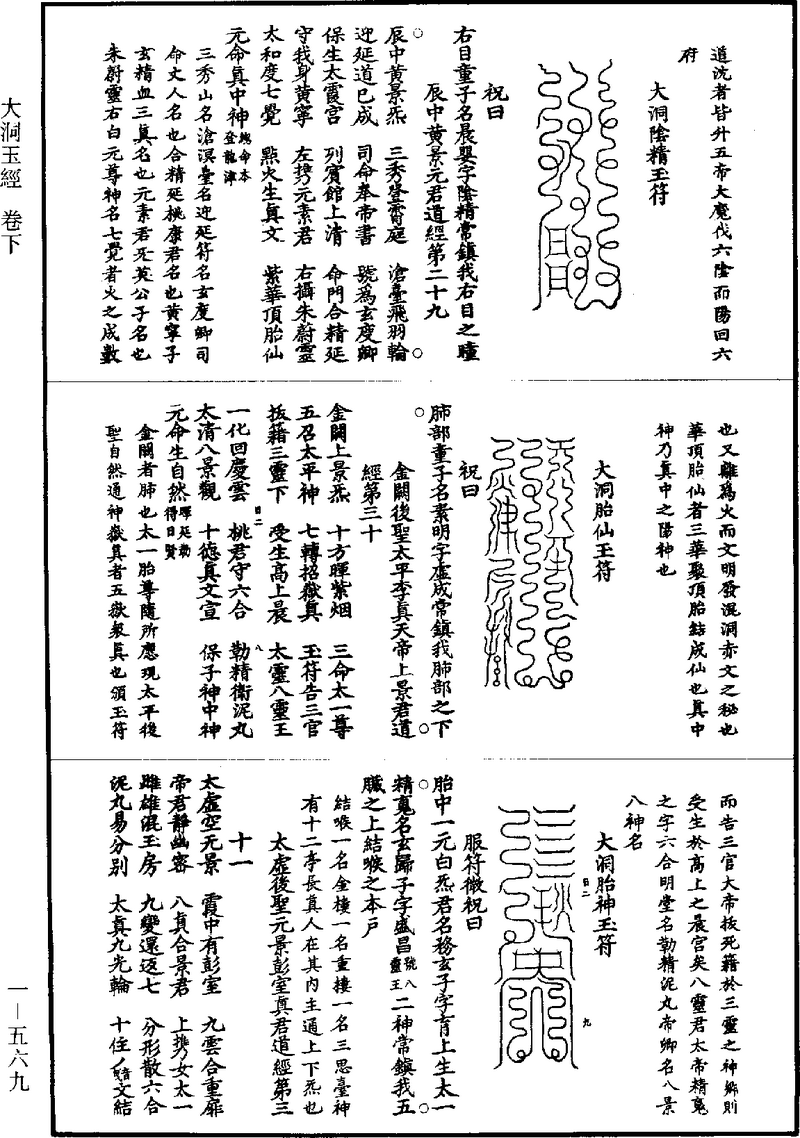 大洞玉經 卷下
一—五六九
道沈者皆升五帝大魔伐六陰而陽回六
府
大洞陰精玉符
祝曰
右目童子名晨嬰字陰精常鎮我右目之瞳
辰中黃景元君道經第二十九
辰中黃景炁 三秀登霄庭 滄臺飛羽輪
迎延道已成 司命奉帝書 號爲玄度卿
保生太霞宮 列賓館上清 命門合精延
守我身黃寧 左携元素君 右攝朱蔚靈
太和度七覺 點火生真文 紫華頂胎仙
元命真中神 魂命本登龍津
三秀山名滄溟臺名迎延符名玄度卿司
命丈人名也合精延桃康君名也黃寧子
玄精血三真名也元素君牙英公子名也
朱蔚靈右白元尊神名七覺者火之成數
也又離爲火而文明發混洞赤文之秘也
華頂胎仙者三華聚頂胎結成仙也真中
神乃真中之陽神也
大洞胎仙玉符
祝曰
肺部童子名素明字虛成常鎮我肺部之下
金闕後聖太平李真天帝上景君道
經第三十
金闕上景炁 十方暉紫烟 三命太一尊
五召太平神 七轉招嶽真 玉符告三官
拔籍三靈下 受生高上晨 太靈八靈王
一化回慶雲 桃君守六合 勒精衛泥丸
太清八景觀 十德真文宣 保子神中神
元命生自然 暉延勒得日賢
金闕者肺也太一胎尊隨所應現太平後
聖自然通神嶽真者五嶽衆真也頒玉符
而告三官大帝拔死籍於三靈之神鄉則
受生於高上之晨宮矣八靈君太帝精魂
之字六合明堂名勒精泥丸帝卿名八景
八神名
大洞胎神玉符
服符微祝曰
胎中一元白炁君名務玄子字育上生太一
精魂名玄歸子字盛昌 號八靈王 二神常鎮我五
臟之上結喉之本戶
結喉一名金樓一名重樓一名三思臺神
有十二亭長真人在其內主通上下炁也
太虛後聖元景彭室真君道經第三
十一
太虛空元景 霞中有彭室 九雲合重扉
帝君靜幽密 八真合景君 上携女太一
雌雄混玉房 九變還返七 分形散六合
泥丸易分别 太真九光輪